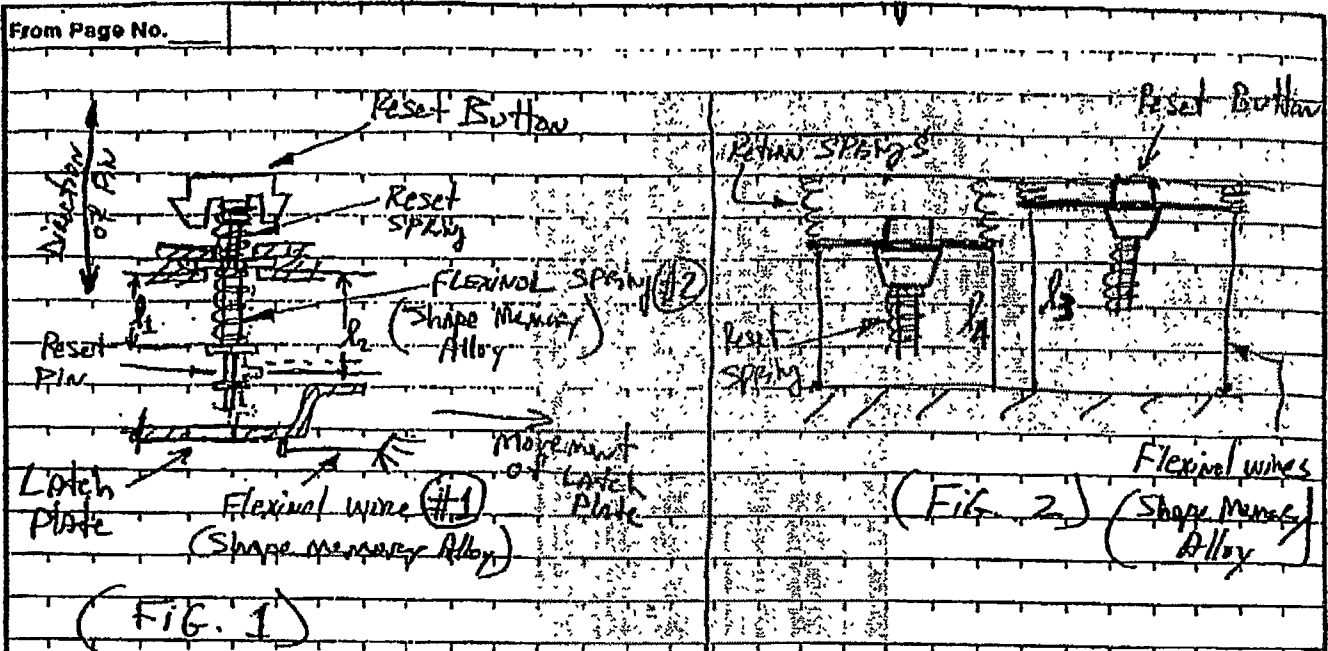 From Page No.
Direction
of Pin
Reset Button
Reset
Spring
FLEXINOL SPRING #2
(Shape Memory
Alloy)
l1
l2
Reset
Pin
Latch
Plate
Flexinol wire #1
(Shape memory Alloy)
Movement
of Latch
Plate
(FIG. 1)
Return Springs
Reset Button
Reset
Spring
l4
l3
Flexinol wires
(Shape Memory
Alloy)
(FIG. 2)